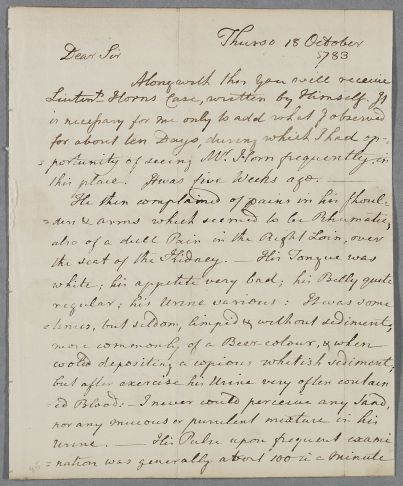 Thurso 18 October
1783
Dear Sir
Along with this You will receive
Lieutent. Horns Case, written by Himself. It
is necessary for me only to add what I observed
for about ten Days, during which I had op-
=portunity of seeing Mr. Horn frequently in
this place. It was five Weeks ago. —
He then complained of pains in his Shoul-
=ders & arms which seemed to be Rheumatic,
also of a dull Pain in the Right Loin, over
the seat of the Kidney. — His Tongue was
white; his appetite very bad; his Belly quite
regular; his Urine various: It was some
=times, but seldom, limpid & without sediment,
more commonly of a Beer colour, & when
cold depositing a copious whitish sediment,
but after exercise his Urine very often contain
=ed Blood: — I never could perceive any Sand,
nor any mucous or purulent mixture in his
Urine. — His Pulse upon frequent exami
=nation was generally about 100 in a Minute